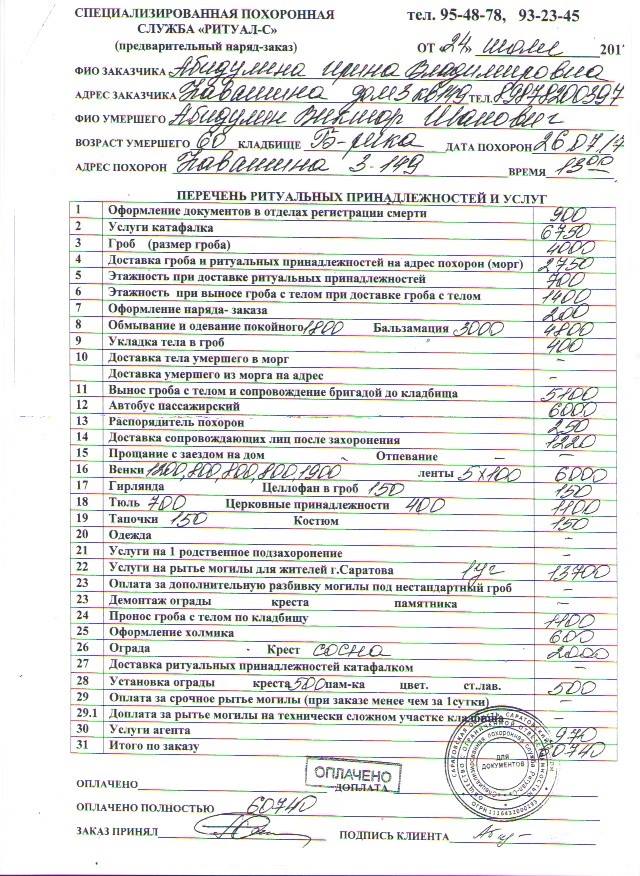 СПЕЦИАЛИЗИРОВАННАЯ ПОХОРОННАЯ тел. 95-48-78, 93-23-45
СЛУЖБА «РИТУАЛ-С»
(предварительный наряд-заказ) ОТ "24" июля 201
ФИО ЗАКАЗЧИКА Абидулина Ирина Владимировна
АДРЕС ЗАКАЗЧИКА Навашина дом 3 кв 149 ТЕЛ. 89878200397
ФИО УМЕРШЕГО Абидулин Виктор Иванович
ВОЗРАСТ УМЕРШЕГО 60 КЛАДБИЩЕ Б-речка ДАТА ПОХОРОН 26.07.17
АДРЕС ПОХОРОН Навашина 3-149 ВРЕМЯ 13 00
ПЕРЕЧЕНЬ РИТУАЛЬНЫХ ПРИНАДЛЕЖНОСТЕЙ И УСЛУГ
1 Оформление документов в отделах регистрации смерти 900
2 Услуги катафалка 6750
3 Гроб (размер гроба) 4000
4 Доставка гроба и ритуальных принадлежностей на адрес похорон (морг) 2750
5 Этажность при доставке ритуальных принадлежностей 700
6 Этажность при выносе гроба с телом при доставке гроба с телом 1400
7 Оформление наряда- заказа 200
8 Обмывание и одевание покойного 1800 Бальзамация 3000 4800
9 Укладка тела в гроб 400
10 Доставка тела умершего в морг –
Доставка умершего из морга на адрес –
11 Вынос гроба с телом и сопровождение бригадой до кладбища 5100
12 Автобус пассажирский 6000
13 Распорядитель похорон 250
14 Доставка сопровождающих лиц после захоронения 1220
15 Прощание с заездом на дом – Отпевание – –
16 Венки 1200,800,800,800,1900 ленты 5х100 6000
17 Гирлянда Целлофан в гроб 150 150
18 Тюль 700 Церковные принадлежности 400 1100
19 Тапочки 150 Костюм 150
20 Одежда –
21 Услуги на 1 родственное подзахоронение –
22 Услуги на рытье могилы для жителей г.Саратова 1уч 13700
23 Оплата за дополнительную разбивку могилы под нестандартный гроб –
23 Демонтаж ограды креста памятника –
24 Пронос гроба с телом по кладбищу 1100
25 Оформление холмика 600
26 Ограда Крест сосна 2000
27 Доставка ритуальных принадлежностей катафалком –
28 Установка ограды креста 500 пам-ка цвет. ст.лав. 500
29 Оплата за срочное рытье могилы (при заказе менее чем за 1сутки) –
29.1 Доплата за рытье могилы на технически сложном участке кладбища –
30 Услуги агента 970
31 Итого по заказу 60740
ОПЛАЧЕНО
ОПЛАЧЕНО ДОПЛАТА
ДЛЯ ДОКУМЕНТОВ
ОПЛАЧЕНО ПОЛНОСТЬЮ 60740
ЗАКАЗ ПРИНЯЛ ПОДПИСЬ КЛИЕНТА